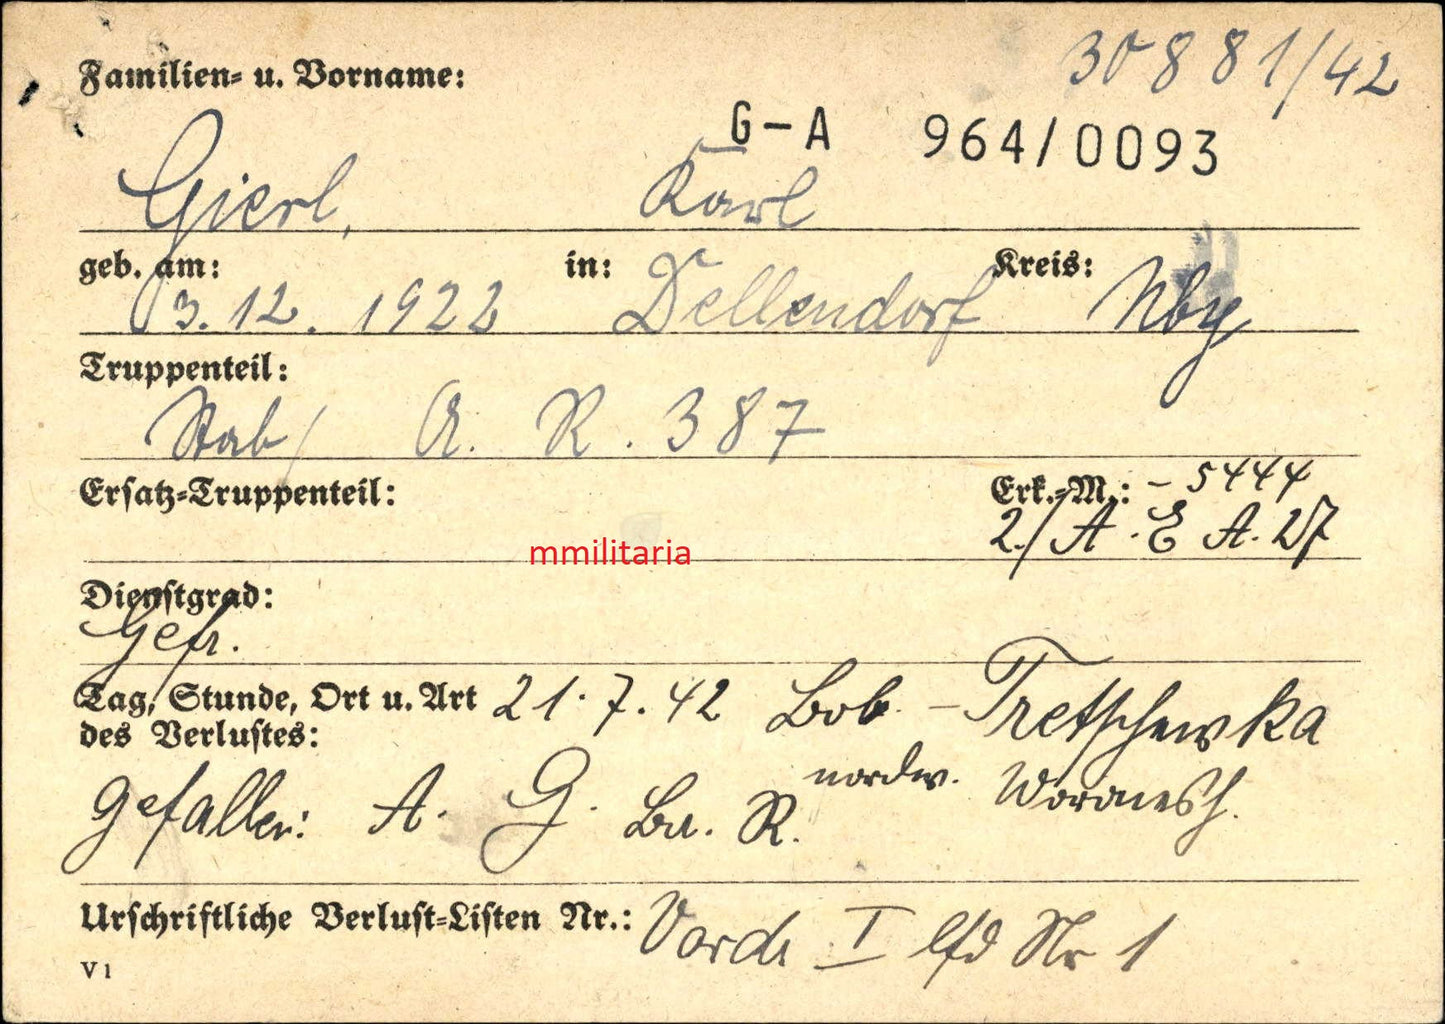 30881/42
Familien- u. Vorname:
G-A 964/0093
Gierl, Karl
geb. am: in: Kreis:
3.12.1922 Dellendorf Nbg
Truppenteil:
Stab/ A. R. 387
Ersatz-Truppenteil: Erk.-M.: - 5444
2./A. E A. 27
mmilitaria
Dienstgrad:
Gefr.
Tag, Stunde, Ort u. Art 21.7.42 Bob. - Tretschewka
des Verlustes: nordw. Woronesh.
gefallen: A. G. Br. R.
Urschriftliche Verlust-Listen Nr.: Vordr. I lfd Nr 1
V1